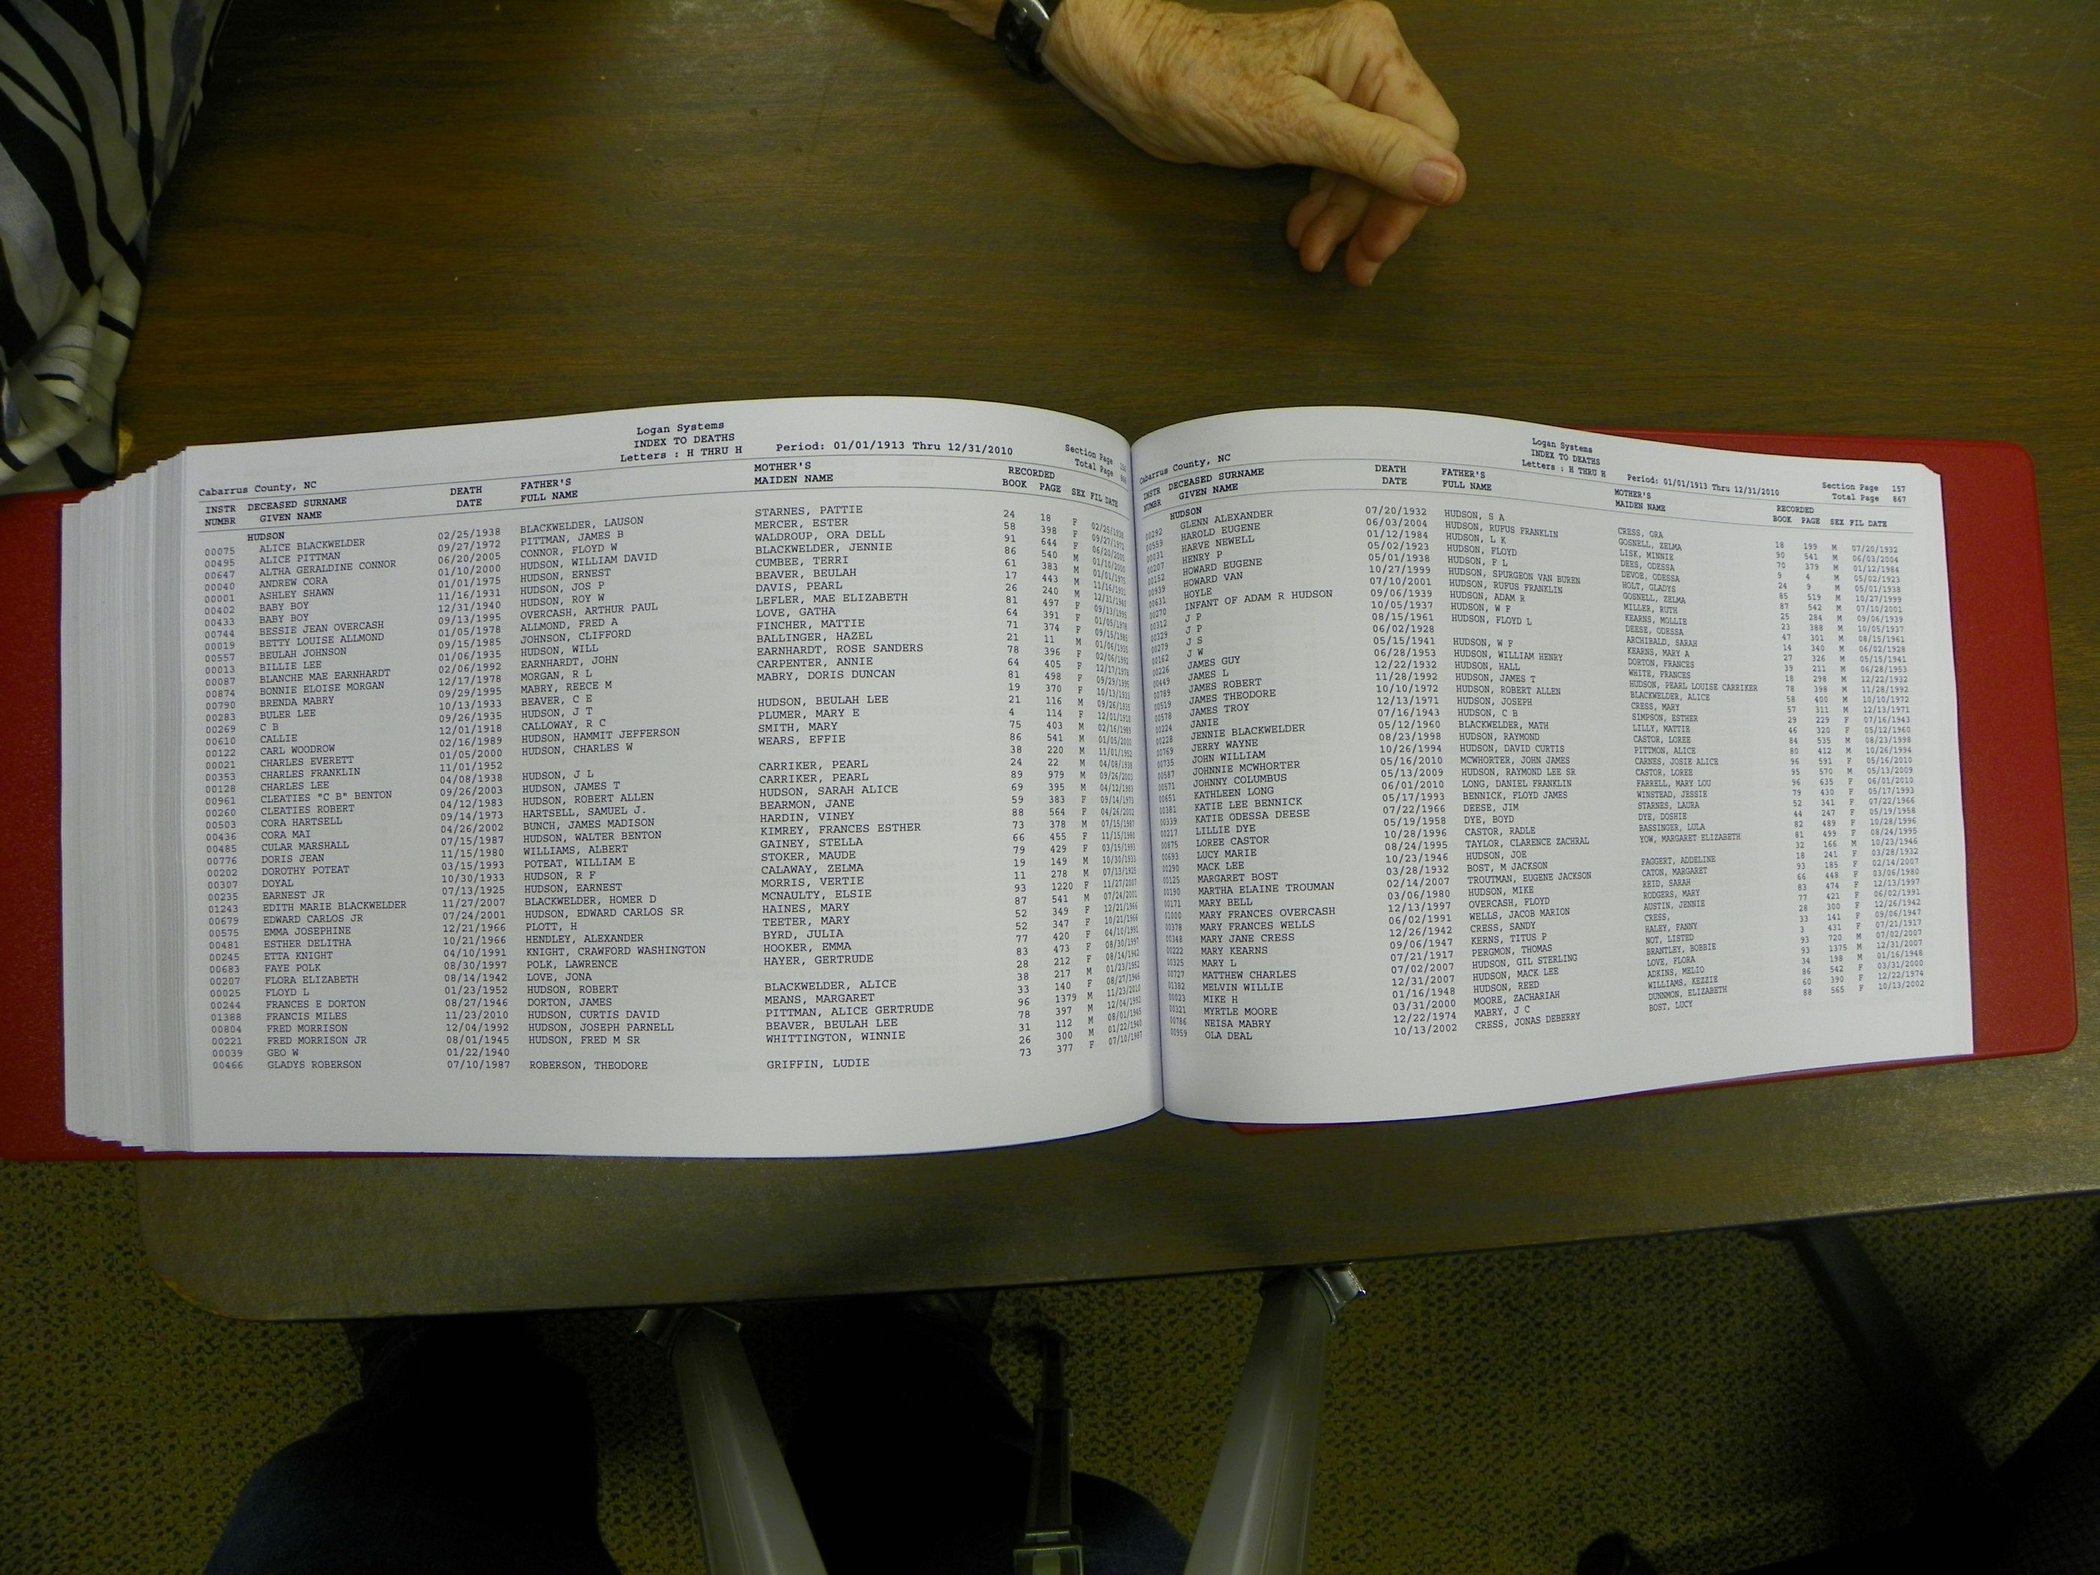 Logan Systems
INDEX TO DEATHS
Letters : H THRU H Period: 01/01/1913 Thru 12/31/2010
Section Page
Total Page
Cabarrus County, NC
INSTR DECEASED SURNAME DEATH FATHER'S MOTHER'S RECORDED
NUMBR GIVEN NAME DATE FULL NAME MAIDEN NAME BOOK PAGE SEX FIL DATE
HUDSON
00075 ALICE BLACKWELDER 02/25/1938 BLACKWELDER, LAUSON STARNES, PATTIE 24 18 F 02/25/1938
00495 ALICE PITTMAN 09/27/1972 PITTMAN, JAMES B MERCER, ESTER 58 398 F 09/27/1972
00647 ALTHA GERALDINE CONNOR 06/20/2005 CONNOR, FLOYD W WALDROUP, ORA DELL 91 644 F 06/20/2005
00040 ANDREW CORA 01/10/2000 HUDSON, WILLIAM DAVID BLACKWELDER, JENNIE 86 540 M 01/10/2000
00001 ASHLEY SHAWN 01/01/1975 HUDSON, ERNEST CUMBEE, TERRI 61 383 M 01/01/1975
00402 BABY BOY 11/16/1931 HUDSON, JOS P BEAVER, BEULAH 17 443 M 11/16/1931
00433 BABY BOY 12/31/1940 HUDSON, ROY W DAVIS, PEARL 26 240 M 12/31/1940
00744 BESSIE JEAN OVERCASH 09/13/1995 OVERCASH, ARTHUR PAUL LEFLER, MAE ELIZABETH 81 497 F 09/13/1995
00019 BETTY LOUISE ALLMOND 01/05/1978 ALLMOND, FRED A LOVE, GATHA 64 391 F 01/05/1978
00557 BEULAH JOHNSON 09/15/1985 JOHNSON, CLIFFORD FINCHER, MATTIE 71 374 F 09/15/1985
00013 BILLIE LEE 01/06/1935 HUDSON, WILL BALLINGER, HAZEL 21 11 M 01/06/1935
00087 BLANCHE MAE EARNHARDT 02/06/1992 EARNHARDT, JOHN EARNHARDT, ROSE SANDERS 78 396 F 02/06/1992
00874 BONNIE ELOISE MORGAN 12/17/1978 MORGAN, R L CARPENTER, ANNIE 64 405 F 12/17/1978
00790 BRENDA MABRY 09/29/1995 MABRY, REECE M MABRY, DORIS DUNCAN 81 498 F 09/29/1995
00283 BULER LEE 10/13/1933 BEAVER, C E 19 370 F 10/13/1933
00269 C B 09/26/1935 HUDSON, J T HUDSON, BEULAH LEE 21 116 M 09/26/1935
00610 CALLIE 12/01/1918 CALLOWAY, R C PLUMER, MARY E 4 114 F 12/01/1918
00122 CARL WOODROW 02/16/1989 HUDSON, HAMMIT JEFFERSON SMITH, MARY 75 403 M 02/16/1989
00021 CHARLES EVERETT 01/05/2000 HUDSON, CHARLES W WEARS, EFFIE 86 541 M 01/05/2000
00353 CHARLES FRANKLIN 11/01/1952 38 220 M 11/01/1952
00128 CHARLES LEE 04/08/1938 HUDSON, J L CARRIKER, PEARL 24 22 M 04/08/1938
00961 CLEATIES "C B" BENTON 09/26/2003 HUDSON, JAMES T CARRIKER, PEARL 89 979 M 09/26/2003
00260 CLEATIES ROBERT 04/12/1983 HUDSON, ROBERT ALLEN HUDSON, SARAH ALICE 69 395 M 04/12/1983
00503 CORA HARTSELL 09/14/1973 HARTSELL, SAMUEL J. BEARMON, JANE 59 383 F 09/14/1973
00436 CORA MAI 04/26/2002 BUNCH, JAMES MADISON HARDIN, VINEY 88 564 F 04/26/2002
00485 CULAR MARSHALL 07/15/1987 HUDSON, WALTER BENTON KIMREY, FRANCES ESTHER 73 378 M 07/15/1987
00776 DORIS JEAN 11/15/1980 WILLIAMS, ALBERT GAINEY, STELLA 66 455 F 11/15/1980
00202 DOROTHY POTEAT 03/15/1993 POTEAT, WILLIAM E STOKER, MAUDE 79 429 F 03/15/1993
00307 DOYAL 10/30/1933 HUDSON, R F CALAWAY, ZELMA 19 149 M 10/30/1933
00235 EARNEST JR 07/13/1925 HUDSON, EARNEST MORRIS, VERTIE 11 278 M 07/13/1925
01243 EDITH MARIE BLACKWELDER 11/27/2007 BLACKWELDER, HOMER D MCNAULTY, ELSIE 93 1220 F 11/27/2007
00679 EDWARD CARLOS JR 07/24/2001 HUDSON, EDWARD CARLOS SR HAINES, MARY 87 541 M 07/24/2001
00575 EMMA JOSEPHINE 12/21/1966 PLOTT, H TEETER, MARY 52 349 F 12/21/1966
00481 ESTHER DELITHA 10/21/1966 HENDLEY, ALEXANDER BYRD, JULIA 52 347 F 10/21/1966
00245 ETTA KNIGHT 04/10/1991 KNIGHT, CRAWFORD WASHINGTON HOOKER, EMMA 77 420 F 04/10/1991
00683 FAYE POLK 08/30/1997 POLK, LAWRENCE HAYER, GERTRUDE 83 473 F 08/30/1997
00207 FLORA ELIZABETH 08/14/1942 LOVE, JONA 28 212 F 08/14/1942
00025 FLOYD L 01/23/1952 HUDSON, ROBERT BLACKWELDER, ALICE 38 217 M 01/23/1952
00244 FRANCES E DORTON 08/27/1946 DORTON, JAMES MEANS, MARGARET 33 140 F 08/27/1946
01388 FRANCIS MILES 11/23/2010 HUDSON, CURTIS DAVID PITTMAN, ALICE GERTRUDE 96 1379 M 11/23/2010
00804 FRED MORRISON 12/04/1992 HUDSON, JOSEPH PARNELL BEAVER, BEULAH LEE 78 397 M 12/04/1992
00221 FRED MORRISON JR 08/01/1945 HUDSON, FRED M SR WHITTINGTON, WINNIE 31 112 M 08/01/1945
00039 GEO W 01/22/1940 26 300 M 01/22/1940
00466 GLADYS ROBERSON 07/10/1987 ROBERSON, THEODORE GRIFFIN, LUDIE 73 377 F 07/10/1987
Logan Systems
INDEX TO DEATHS
Letters : H THRU H Period: 01/01/1913 Thru 12/31/2010
Section Page 157
Total Page 867
Cabarrus County, NC
INSTR DECEASED SURNAME DEATH FATHER'S MOTHER'S RECORDED
NUMBR GIVEN NAME DATE FULL NAME MAIDEN NAME BOOK PAGE SEX FIL DATE
HUDSON
00292 GLENN ALEXANDER 07/20/1932 HUDSON, S A CRESS, ORA 18 199 M 07/20/1932
00559 HAROLD EUGENE 06/03/2004 HUDSON, RUFUS FRANKLIN GOSNELL, ZELMA 90 541 M 06/03/2004
00031 HARVE NEWELL 01/12/1984 HUDSON, L K LISK, MINNIE 70 379 M 01/12/1984
00207 HENRY P 05/02/1923 HUDSON, FLOYD DEES, ODESSA 9 4 M 05/02/1923
00152 HOWARD EUGENE 05/01/1938 HUDSON, F L DEVOE, ODESSA 24 9 M 05/01/1938
00939 HOWARD VAN 10/27/1999 HUDSON, SPURGEON VAN BUREN HOLT, GLADYS 85 519 M 10/27/1999
00631 HOYLE 07/10/2001 HUDSON, RUFUS FRANKLIN GOSNELL, ZELMA 87 542 M 07/10/2001
00270 INFANT OF ADAM R HUDSON 09/06/1939 HUDSON, ADAM R MILLER, RUTH 25 284 M 09/06/1939
00312 J P 10/05/1937 HUDSON, W F KEARNS, MOLLIE 23 388 M 10/05/1937
00329 J P 08/15/1961 HUDSON, FLOYD L DEESE, ODESSA 47 301 M 08/15/1961
00279 J S 06/02/1928 ARCHIBALD, SARAH 14 340 M 06/02/1928
00162 J W 05/15/1941 HUDSON, W F KEARNS, MARY A 27 326 M 05/15/1941
00226 JAMES GUY 06/28/1953 HUDSON, WILLIAM HENRY DORTON, FRANCES 39 211 M 06/28/1953
00449 JAMES L 12/22/1932 HUDSON, HALL WHITE, FRANCES 18 298 M 12/22/1932
00789 JAMES ROBERT 11/28/1992 HUDSON, JAMES T HUDSON, PEARL LOUISE CARRIKER 78 398 M 11/28/1992
00519 JAMES THEODORE 10/10/1972 HUDSON, ROBERT ALLEN BLACKWELDER, ALICE 58 400 M 10/10/1972
00578 JAMES TROY 12/13/1971 HUDSON, JOSEPH CRESS, MARY 57 311 M 12/13/1971
00224 JANIE 07/16/1943 HUDSON, C B SIMPSON, ESTHER 29 229 F 07/16/1943
00228 JENNIE BLACKWELDER 05/12/1960 BLACKWELDER, MATH LILLY, MATTIE 46 320 F 05/12/1960
00769 JERRY WAYNE 08/23/1998 HUDSON, RAYMOND CASTOR, LOREE 84 535 M 08/23/1998
00735 JOHN WILLIAM 10/26/1994 HUDSON, DAVID CURTIS PITTMON, ALICE 80 412 M 10/26/1994
00587 JOHNNIE MCWHORTER 05/16/2010 MCWHORTER, JOHN JAMES CARNES, JOSIE ALICE 96 591 F 05/16/2010
00571 JOHNNY COLUMBUS 05/13/2009 HUDSON, RAYMOND LEE SR CASTOR, LOREE 95 570 M 05/13/2009
00651 KATHLEEN LONG 06/01/2010 LONG, DANIEL FRANKLIN FARRELL, MARY LOU 96 635 F 06/01/2010
00381 KATIE LEE BENNICK 05/17/1993 BENNICK, FLOYD JAMES WINSTEAD, JESSIE 79 430 F 05/17/1993
00339 KATIE ODESSA DEESE 07/22/1966 DEESE, JIM STARNES, LAURA 52 341 F 07/22/1966
00217 LILLIE DYE 05/19/1958 DYE, BOYD DYE, DOSHIE 44 247 F 05/19/1958
00875 LOREE CASTOR 10/28/1996 CASTOR, RADLE BASSINGER, LULA 82 489 F 10/28/1996
00693 LUCY MARIE 08/24/1995 TAYLOR, CLARENCE ZACHRAL YOW, MARGARET ELIZABETH 81 499 F 08/24/1995
00290 MACK LEE 10/23/1946 HUDSON, JOE 32 166 M 10/23/1946
00125 MARGARET BOST 03/28/1932 BOST, M JACKSON FAGGERT, ADDELINE 18 241 F 03/28/1932
00190 MARTHA ELAINE TROUMAN 02/14/2007 TROUTMAN, EUGENE JACKSON CATON, MARGARET 93 185 F 02/14/2007
00171 MARY BELL 03/06/1980 HUDSON, MIKE REID, SARAH 66 448 F 03/06/1980
01000 MARY FRANCES OVERCASH 12/13/1997 OVERCASH, FLOYD RODGERS, MARY 83 474 F 12/13/1997
00378 MARY FRANCES WELLS 06/02/1991 WELLS, JACOB MARION AUSTIN, JENNIE 77 421 F 06/02/1991
00348 MARY JANE CRESS 12/26/1942 CRESS, SANDY CRESS, 28 300 F 12/26/1942
00222 MARY KEARNS 09/06/1947 KERNS, TITUS P HALEY, FANNY 33 141 F 09/06/1947
00325 MARY L 07/21/1917 PERGMON, THOMAS NOT, LISTED 3 431 F 07/21/1917
00727 MATTHEW CHARLES 07/02/2007 HUDSON, GIL STERLING BRANTLEY, BOBBIE 93 720 M 07/02/2007
01382 MELVIN WILLIE 12/31/2007 HUDSON, MACK LEE LOVE, FLORA 93 1375 M 12/31/2007
00023 MIKE H 01/16/1948 HUDSON, REED ADKINS, MELIO 34 198 M 01/16/1948
00321 MYRTLE MOORE 03/31/2000 MOORE, ZACHARIAH WILLIAMS, KEZZIE 86 542 F 03/31/2000
00786 NEISA MABRY 12/22/1974 MABRY, J C DUNNMON, ELIZABETH 60 390 F 12/22/1974
00959 OLA DEAL 10/13/2002 CRESS, JONAS DEBERRY BOST, LUCY 88 565 F 10/13/2002